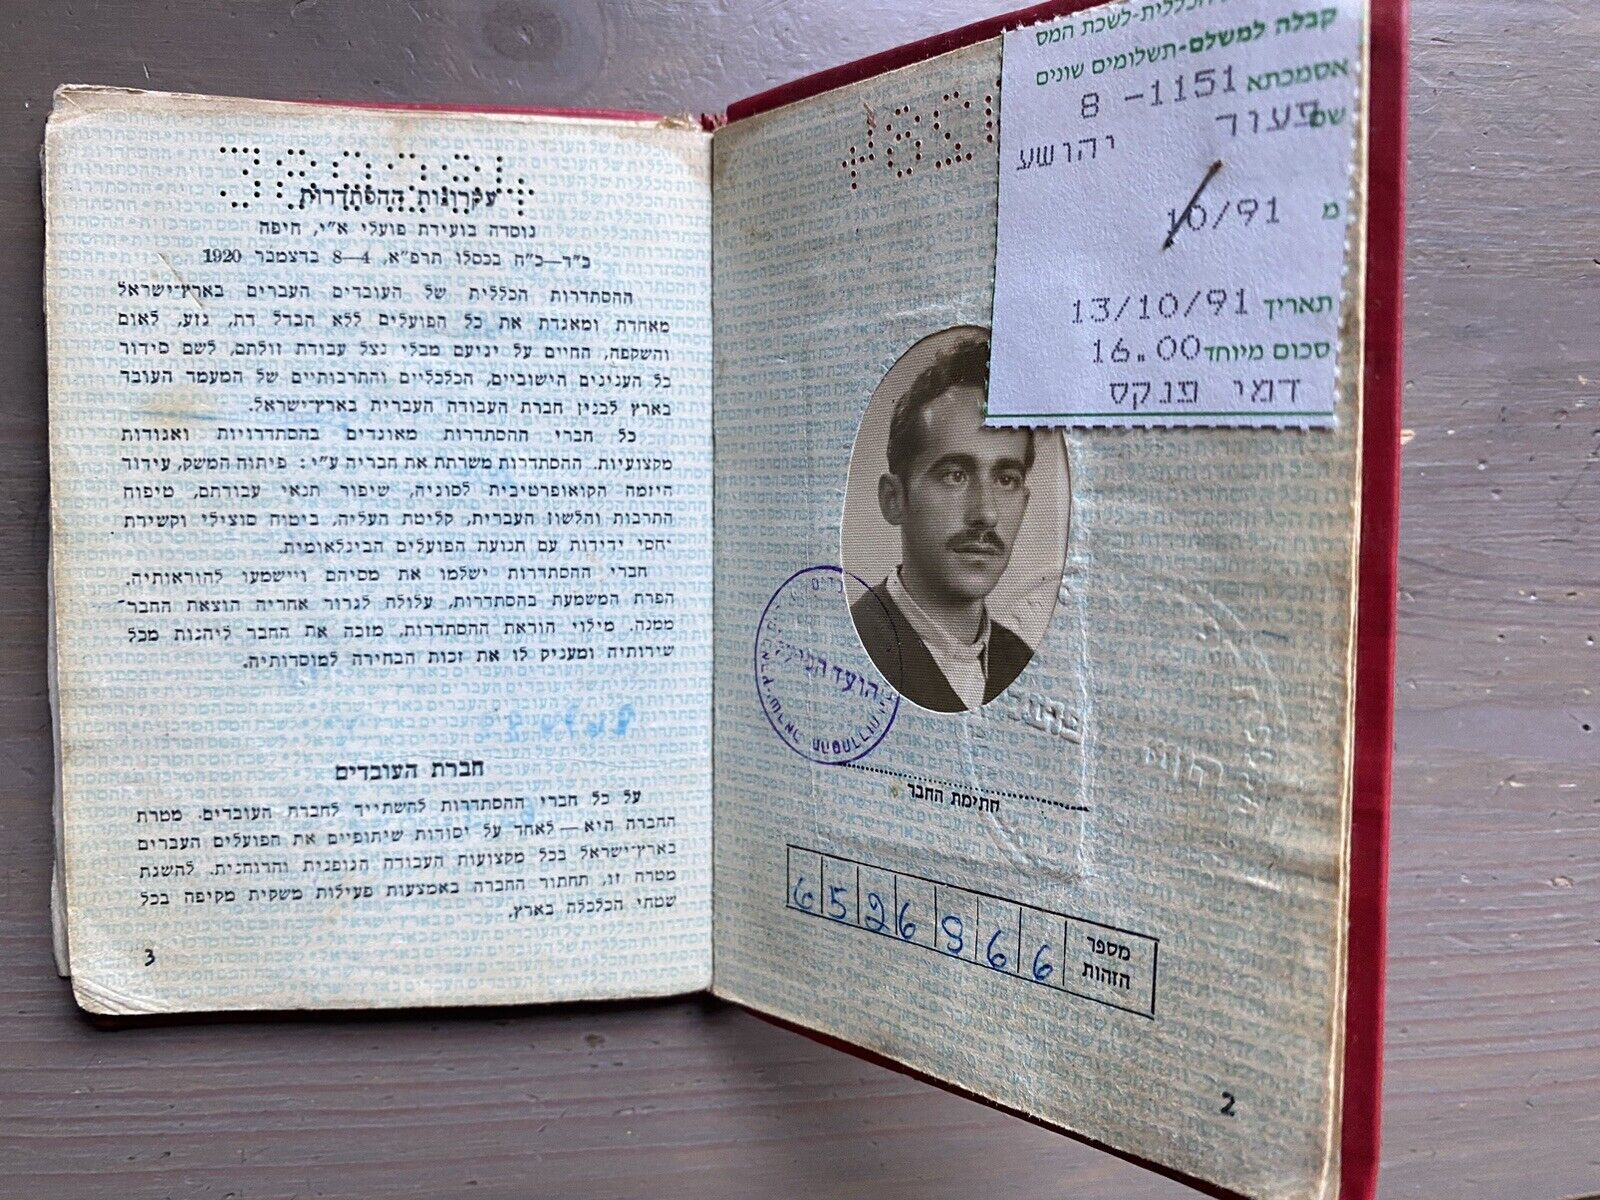 הכללית-לשכת המס
קבלה למשלם-תשלומים שונים
אסמכתא 1151- 8
שם פעור יהושע
מ 10/91
תאריך 13/10/91
סכום מיוחד 16.00
דמי פנקס
הועד הפועל
חתימת החבר
מספר הזהות
6 5 2 6 9 6 6
2
עקרונות ההסתדרות
נוסדה בועידת פועלי א״י, חיפה
כ״ד—כ״ח בכסלו תרפ״א, 4—8 בדצמבר 1920
ההסתדרות הכללית של העובדים העברים בארץ־ישראל
מאחדת ומאגדת את כל הפועלים ללא הבדל דת, גזע, לאום
והשקפה, החיים על יגיעם מבלי נצל עבודת זולתם, לשם סידור
כל הענינים הישוביים, הכלכליים והתרבותיים של המעמד העובד
בארץ לבנין חברת העבודה העברית בארץ־ישראל.
כל חברי ההסתדרות מאוגדים בהסתדרויות ואגודות
מקצועיות. ההסתדרות משרתת את חבריה ע״י: פיתוח המשק, עידוד
היזמה הקואופרטיבית לסוגיה, שיפור תנאי עבודתם, טיפוח
התרבות והלשון העברית, קליטת העליה, ביטוח סוציאלי וקשירת
יחסי ידידות עם תנועת הפועלים הבינלאומית.
חברי ההסתדרות ישלמו את מסיהם ויישמעו להוראותיה.
הפרת המשמעת בהסתדרות, עלולה לגרור אחריה הוצאת החבר
ממנה. מילוי הוראת ההסתדרות, מזכה את החבר ליהנות מכל
שירותיה ומעניק לו את זכות הבחירה למוסדותיה.
חברת העובדים
על כל חברי ההסתדרות להשתייך לחברת העובדים. מטרת
החברה היא — לאחד על יסודות שיתופיים את הפועלים העברים
בארץ־ישראל בכל מקצועות העבודה הגופנית והרוחנית. להשגת
מטרה זו, תחתור החברה באמצעות פעילות משקית מקיפה בכל
שטחי הכלכלה בארץ.
3